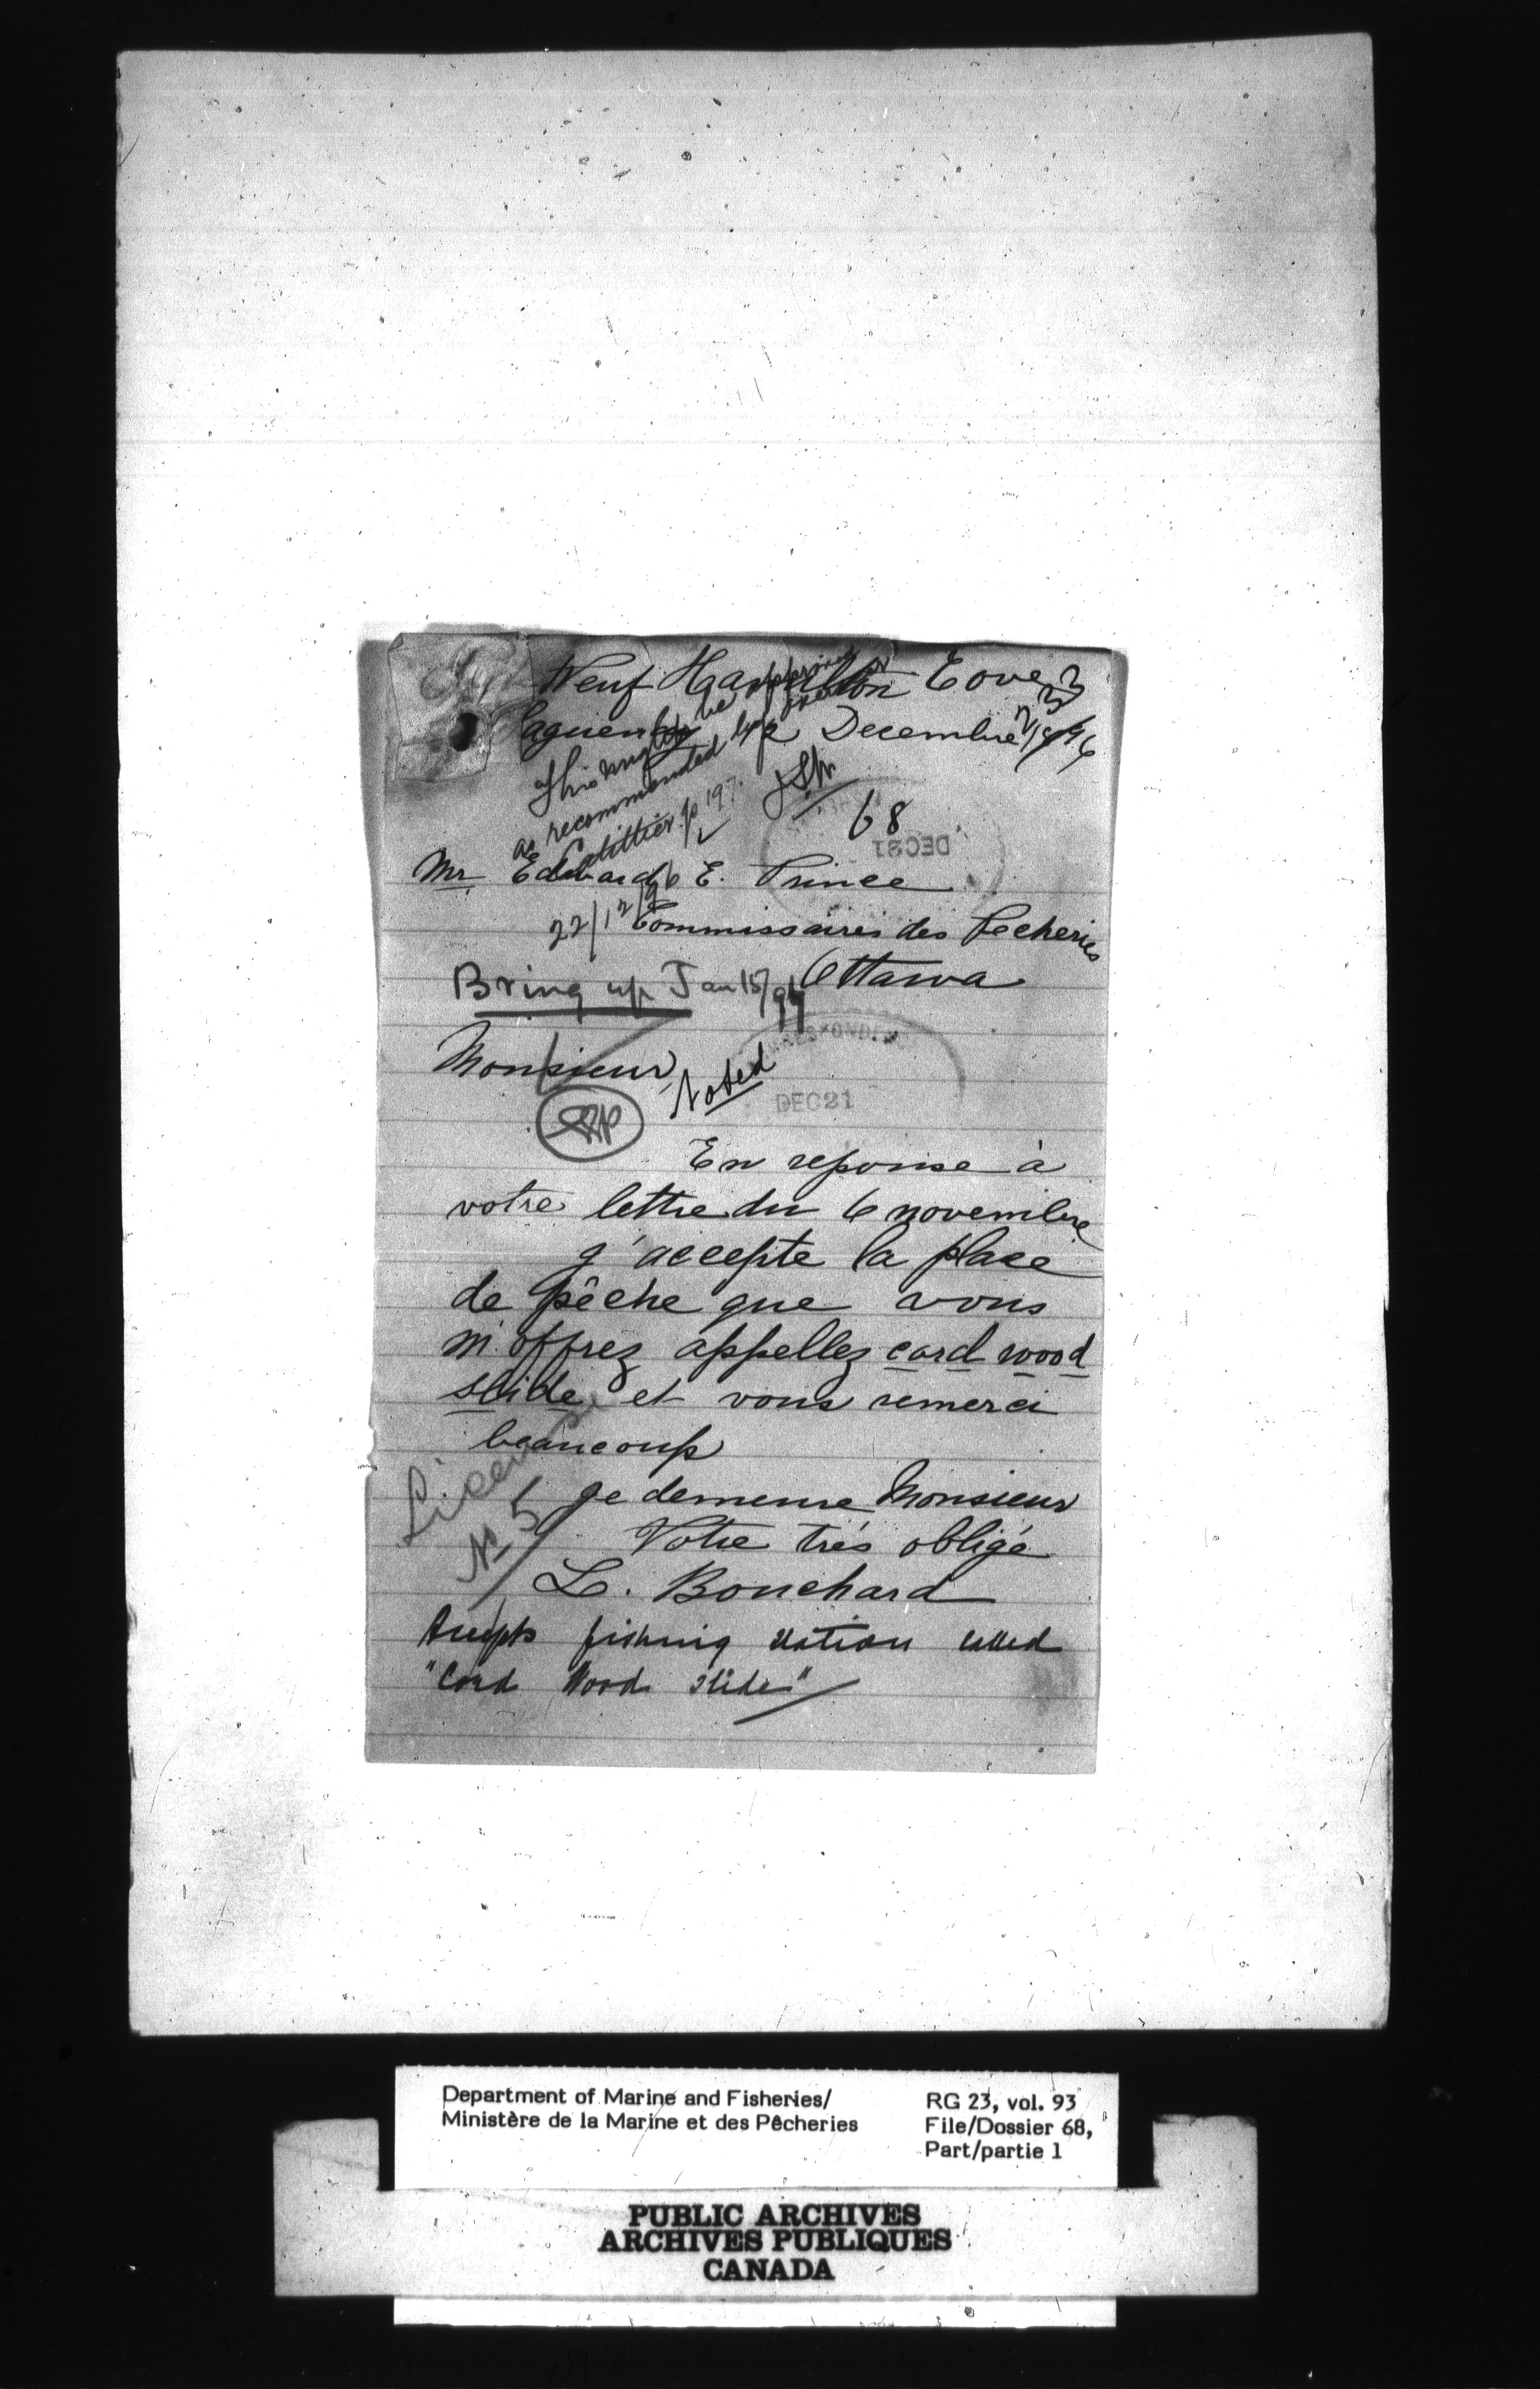 Neuf Hamilton Cove
Saguenay 12 Decembre 1896
233
This might be approved
as recommended by Overseer
Catillier p 197.
68
DEC 21
Mr Edwarde E. Prince
22/12/96
Commissaires des Pecheries
Ottawa
Bring up Jan 15/97
Monsieur,
Noted
DEC 21
En reponse à
votre lettre du 6 novembre
j'accepte la place
de pêche que vous
m'offrez appellez card wood
slide et vous remerci
beaucoup
je demeure Monsieur
Votre très obligé
L. Bouchard
License
No 5
Accepts fishing station called
"Cord Wood Slide"
Department of Marine and Fisheries/
Ministère de la Marine et des Pêcheries
RG 23, vol. 93
File/Dossier 68,
Part/partie 1
PUBLIC ARCHIVES
ARCHIVES PUBLIQUES
CANADA